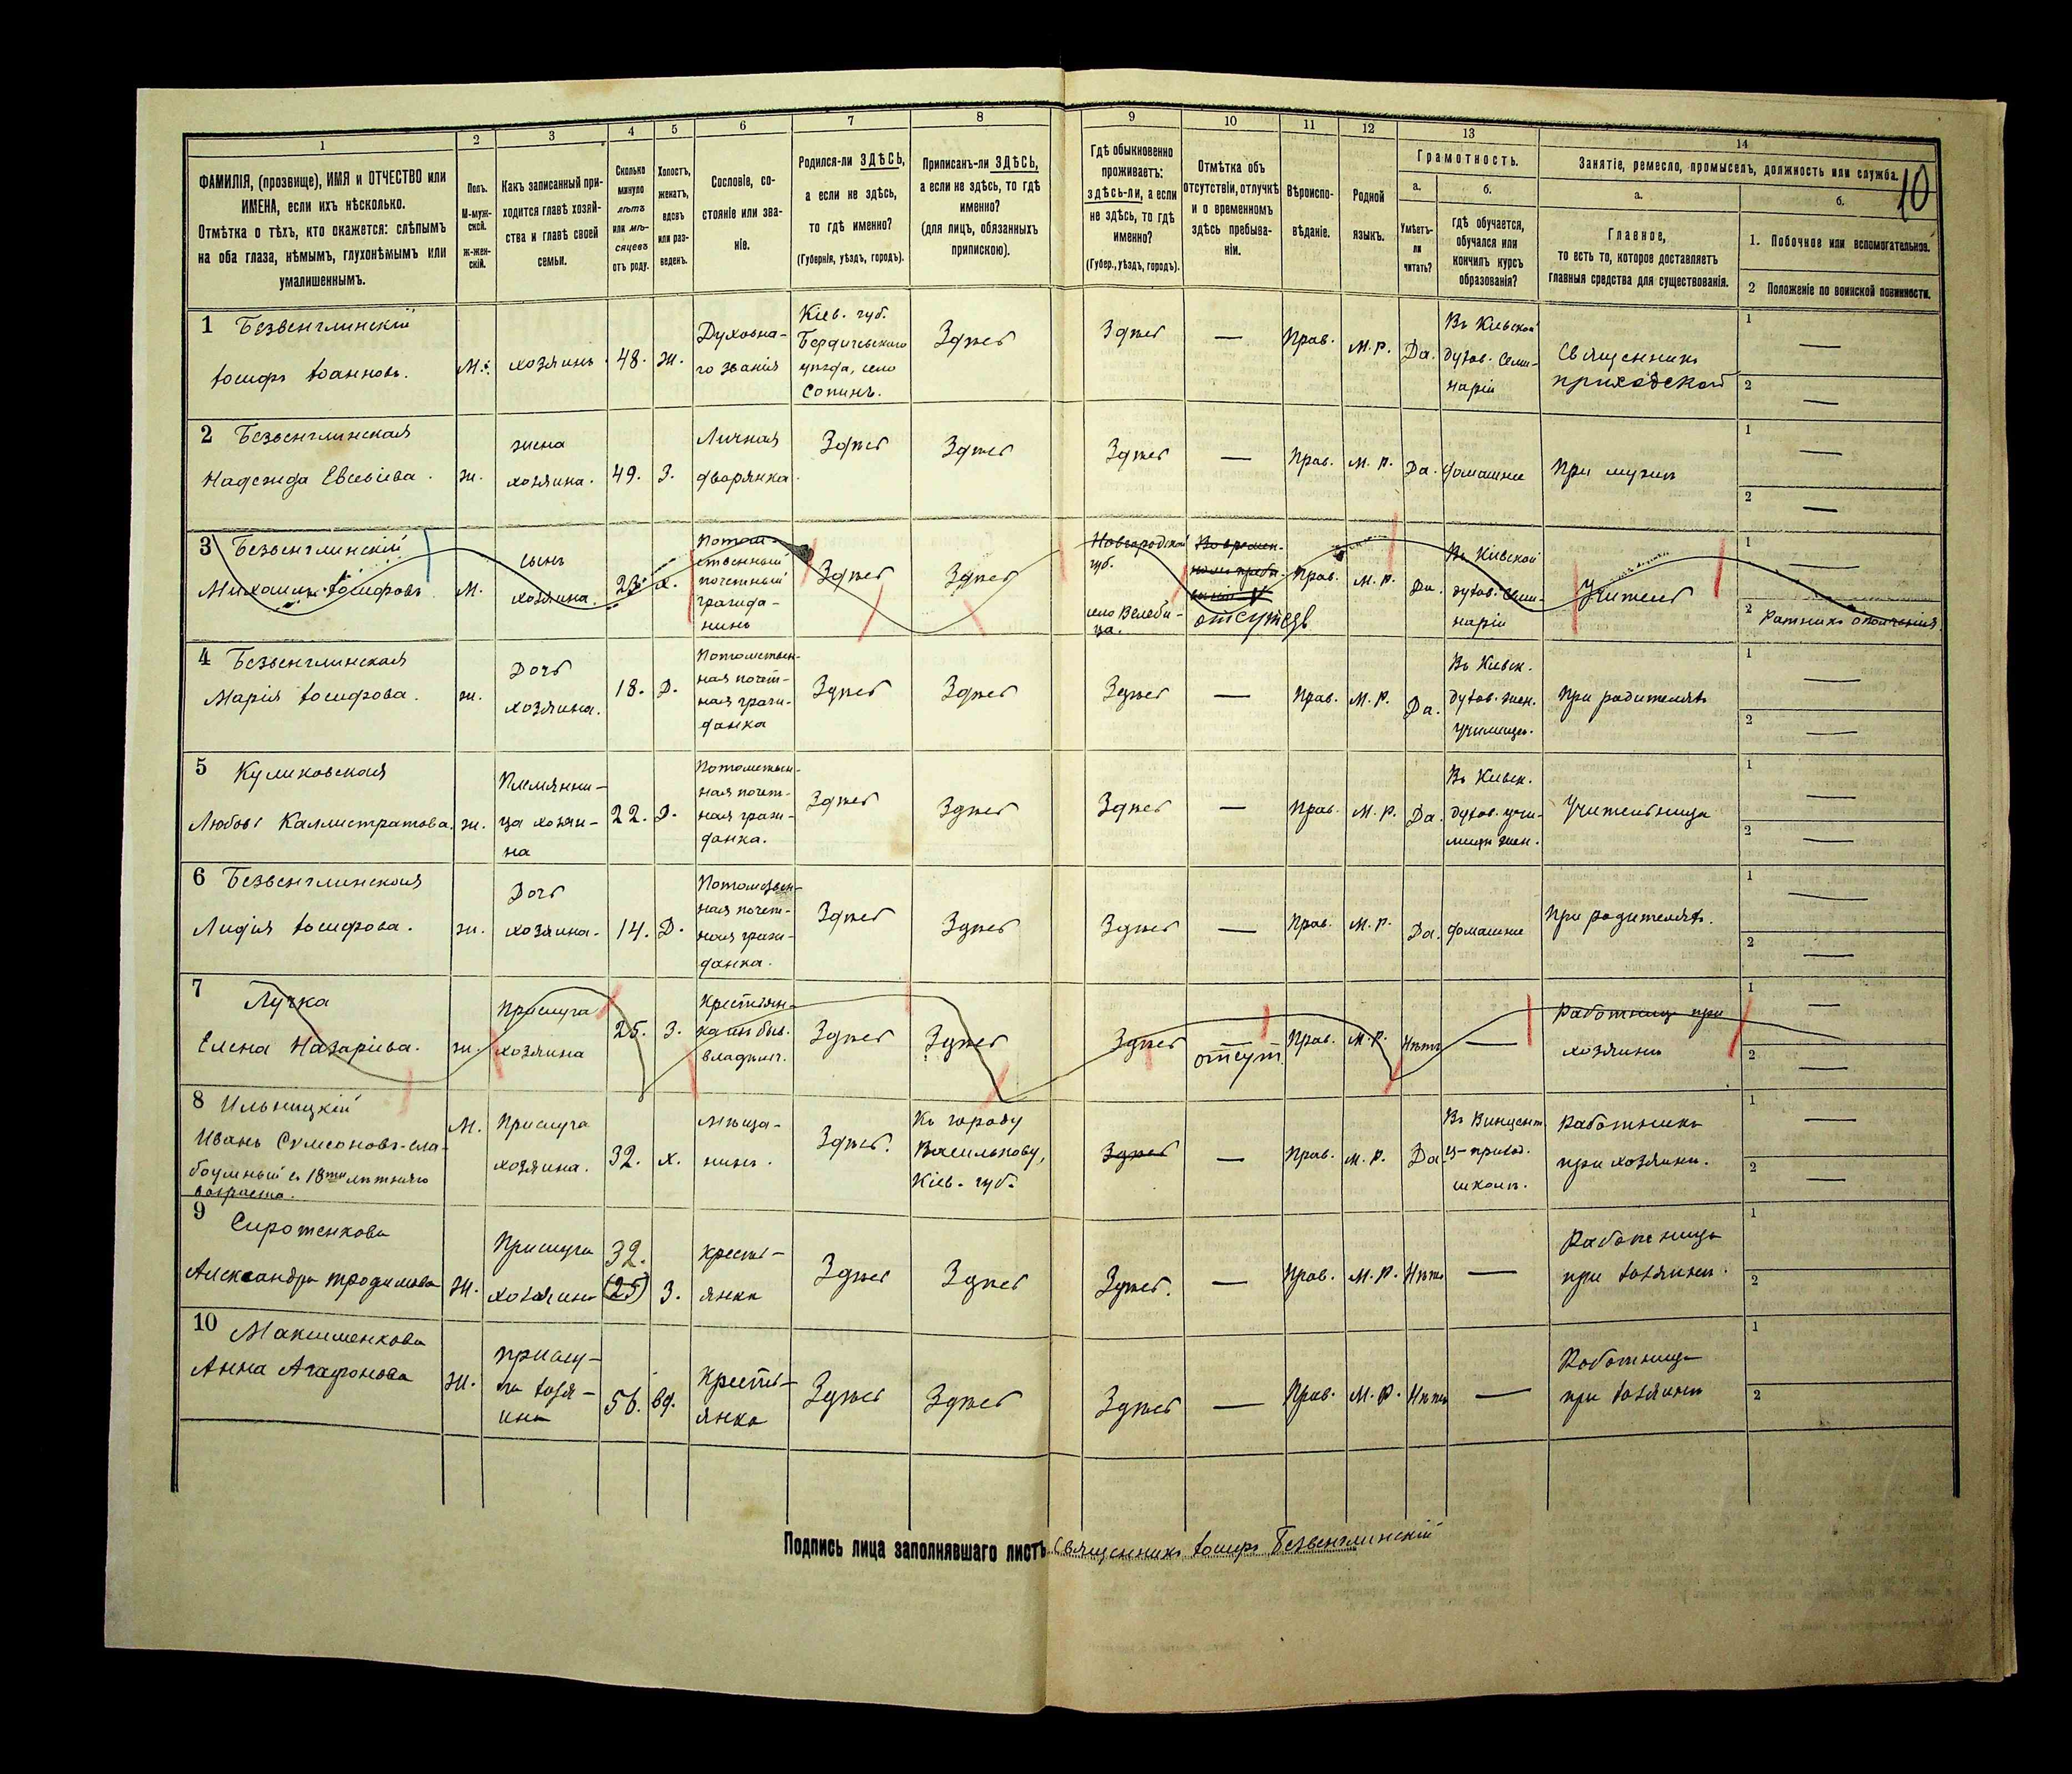 10
1 2 3 4 5 6 7 8 9 10 11 12 13 14
ФАМИЛІЯ, (прозвище), ИМЯ и ОТЧЕСТВО или
ИМЕНА, если ихъ нѣсколько.
Отмѣтка о тѣхъ, кто окажется: слѣпымъ
на оба глаза, нѣмымъ, глухонѣмымъ или
умалишеннымъ.
Полъ.
М-муж-
ской.
ж-жен-
скій.
Какъ записанный при-
ходится главѣ хозяй-
ства и главѣ своей
семьи.
Сколько
минуло
лѣтъ
или мѣ-
сяцевъ
отъ роду.
Холостъ,
женатъ,
вдовъ
или раз-
веденъ.
Сословіе, со-
стояніе или зва-
ніе.
Родился-ли ЗДѢСЬ,
а если не здѣсь,
то гдѣ именно?
(Губернія, уѣздъ, городъ).
Приписанъ-ли ЗДѢСЬ,
а если не здѣсь, то гдѣ
именно?
(для лицъ, обязанныхъ
припискою).
Гдѣ обыкновенно
проживаетъ:
ЗДѢСЬ-ли, а если
не здѣсь, то гдѣ
именно?
(Губер., уѣздъ, городъ).
Отмѣтка объ
отсутствіи, отлучкѣ
и о временномъ
здѣсь пребыва-
ніи.
Вѣроиспо-
вѣданіе.
Родной
языкъ.
Грамотность.
а.
Умѣетъ-
ли
читать?
б.
гдѣ обучается,
обучался или
кончилъ курсъ
образованія?
Занятіе, ремесло, промыселъ, должность или служба.
а.
Главное,
то есть то, которое доставляетъ
главныя средства для существованія.
б.
1. Побочное или вспомогательное.
2 Положеніе по воинской повинности.
1 Безвенглинскій
Іосифъ Іоанновъ.
М.
хозяинъ.
48.
Ж.
Духовна-
го званія
Кіев. губ.
Бердичевскаго
уѣзда, село
Сопинъ.
Здѣсь
Здѣсь
—
Прав.
М. Р.
Да.
Въ Кіевской
духов. Семи-
наріи
Священникъ
приходской
1 —
2 —
2 Безвенглинская
Надежда Евсевіева.
ж.
жена
хозяина.
49.
З.
Личная
дворянка.
Здѣсь
Здѣсь
Здѣсь
—
Прав.
М. Р.
Да.
домашнее
При мужѣ
1 —
2 —
3 Безвенглинскій
Михаилъ Іосифовъ
М.
сынъ
хозяина.
23.
х.
Потом-
ственный
почетный
гражда-
нинъ
Здѣсь
Здѣсь
Новгородской
губ.
село Велеби-
ца.
Во времен-
отсутств
Прав.
М. Р.
Да.
Въ Кіевской
духов. Семи-
наріи
Учитель
1 —
2 Ратникъ ополченія.
4 Безвенглинская
Марія Іосифова.
ж.
Дочь
хозяина.
18.
Д.
Потомствен-
ная почет-
ная граж-
данка
Здѣсь
Здѣсь
Здѣсь
—
Прав.
М. Р.
Да.
Въ Кіевск.
духов. жен.
училищѣ.
При родителяхъ
1 —
2 —
5 Куликовская
Любовь Каллистратова.
ж.
Племянни-
ца хозяи-
на
22.
Д.
Потомствен-
ная почет-
ная граж-
данка.
Здѣсь
Здѣсь
Здѣсь
—
Прав.
М. Р.
Да.
Въ Кіевск.
духов. учи-
лищѣ жен.
Учительница
1 —
2 —
6 Безвенглинская
Лидія Іосифова.
ж.
Дочь
хозяина.
14.
Д.
Потомствен-
ная почет-
ная граж-
данка.
Здѣсь
Здѣсь
Здѣсь
—
Прав.
М. Р.
Да.
домашнее
При родителяхъ.
1 —
2 —
7 Лучка
Елена Назаріева.
ж.
Прислуга
хозяина
25.
З.
Крестьян-
ка изъ быв.
владѣльч.
Здѣсь
Здѣсь
Здѣсь
отсут.
Прав.
М. Р.
Нѣтъ
—
Работница при
хозяинѣ
1 —
2 —
8 Ильницкій
Иванъ Сумсоновъ-сла-
боумный съ 18ти лѣтняго
возраста.
М.
Прислуга
хозяина.
32.
х.
Мѣща-
нинъ.
Здѣсь.
Къ городу
Василькову,
Кіев. губ.
Здѣсь
—
Прав.
М. Р.
Да.
школѣ.
Работникъ
при хозяинѣ.
1 —
2 —
9 Сиротенкова
Александра Трофимова
Ж.
Прислуга
хозяина
32.
(25)
З.
Кресть-
янка
Здѣсь
Здѣсь
Здѣсь.
—
Прав.
М. Р.
Нѣтъ
—
Работница
при хозяинѣ.
1
2
10 Максименкова
Анна Агафонова
Ж.
Прислу-
га хозя-
ина
56.
вд.
Кресть-
янка
Здѣсь
Здѣсь
Здѣсь
—
Прав.
М. Р.
Нѣтъ
—
Работница
при хозяинѣ
1
2
Подпись лица заполнявшаго листъ Священникъ Іосифъ Безвенглинскій